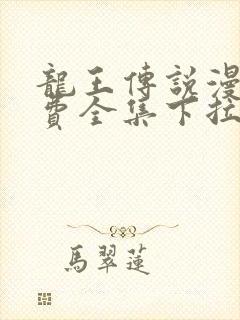 龍王傳說漫
費全集下拉
馬翠蓮